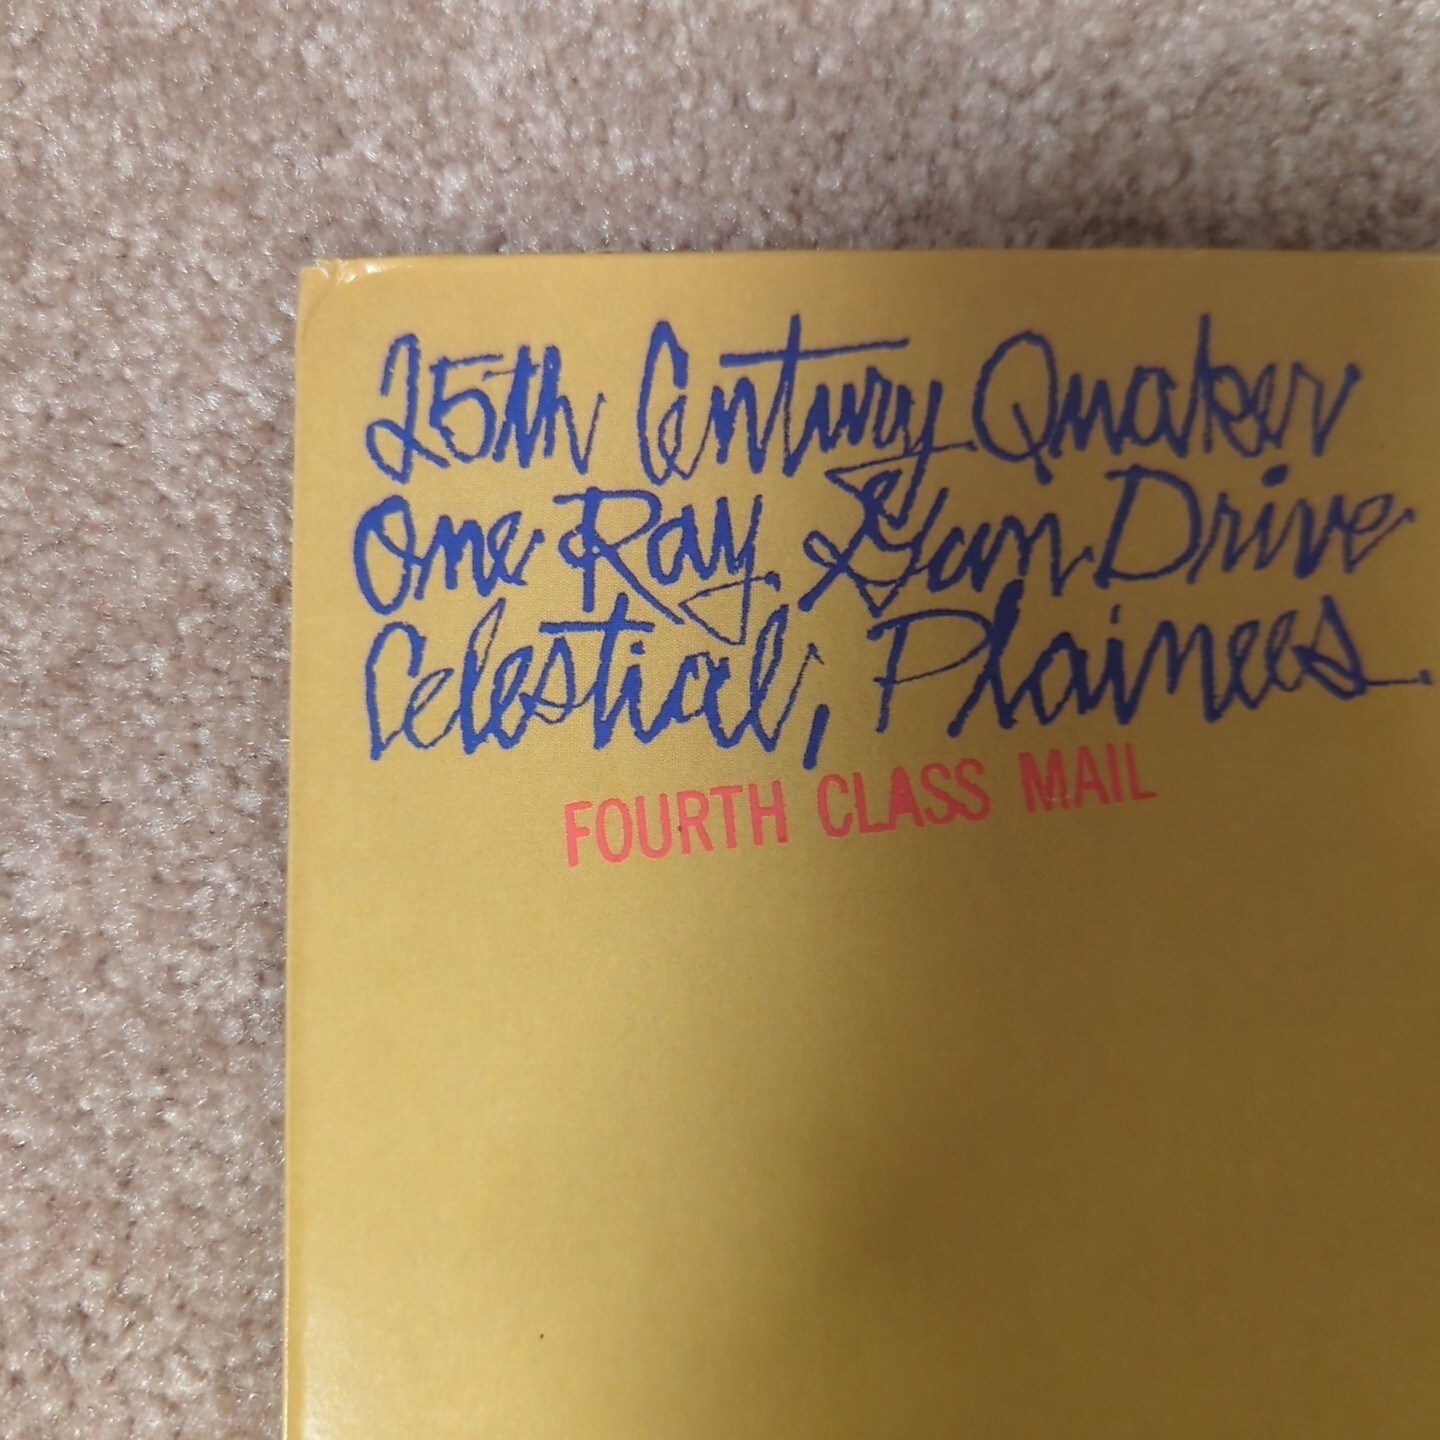 25th Century Quaker
One Ray Gun Drive
Celestial, Plainees.
FOURTH CLASS MAIL